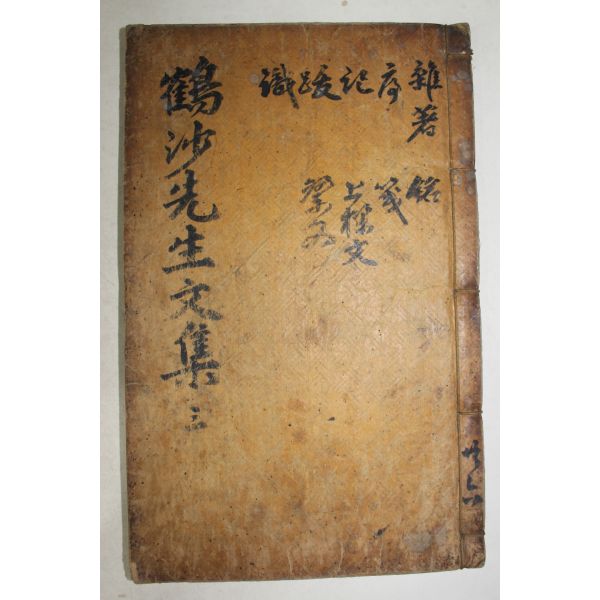 雜著
序
記
跋
識
銘
箋
上樑文
祭文
鶴沙先生文集 三
共六